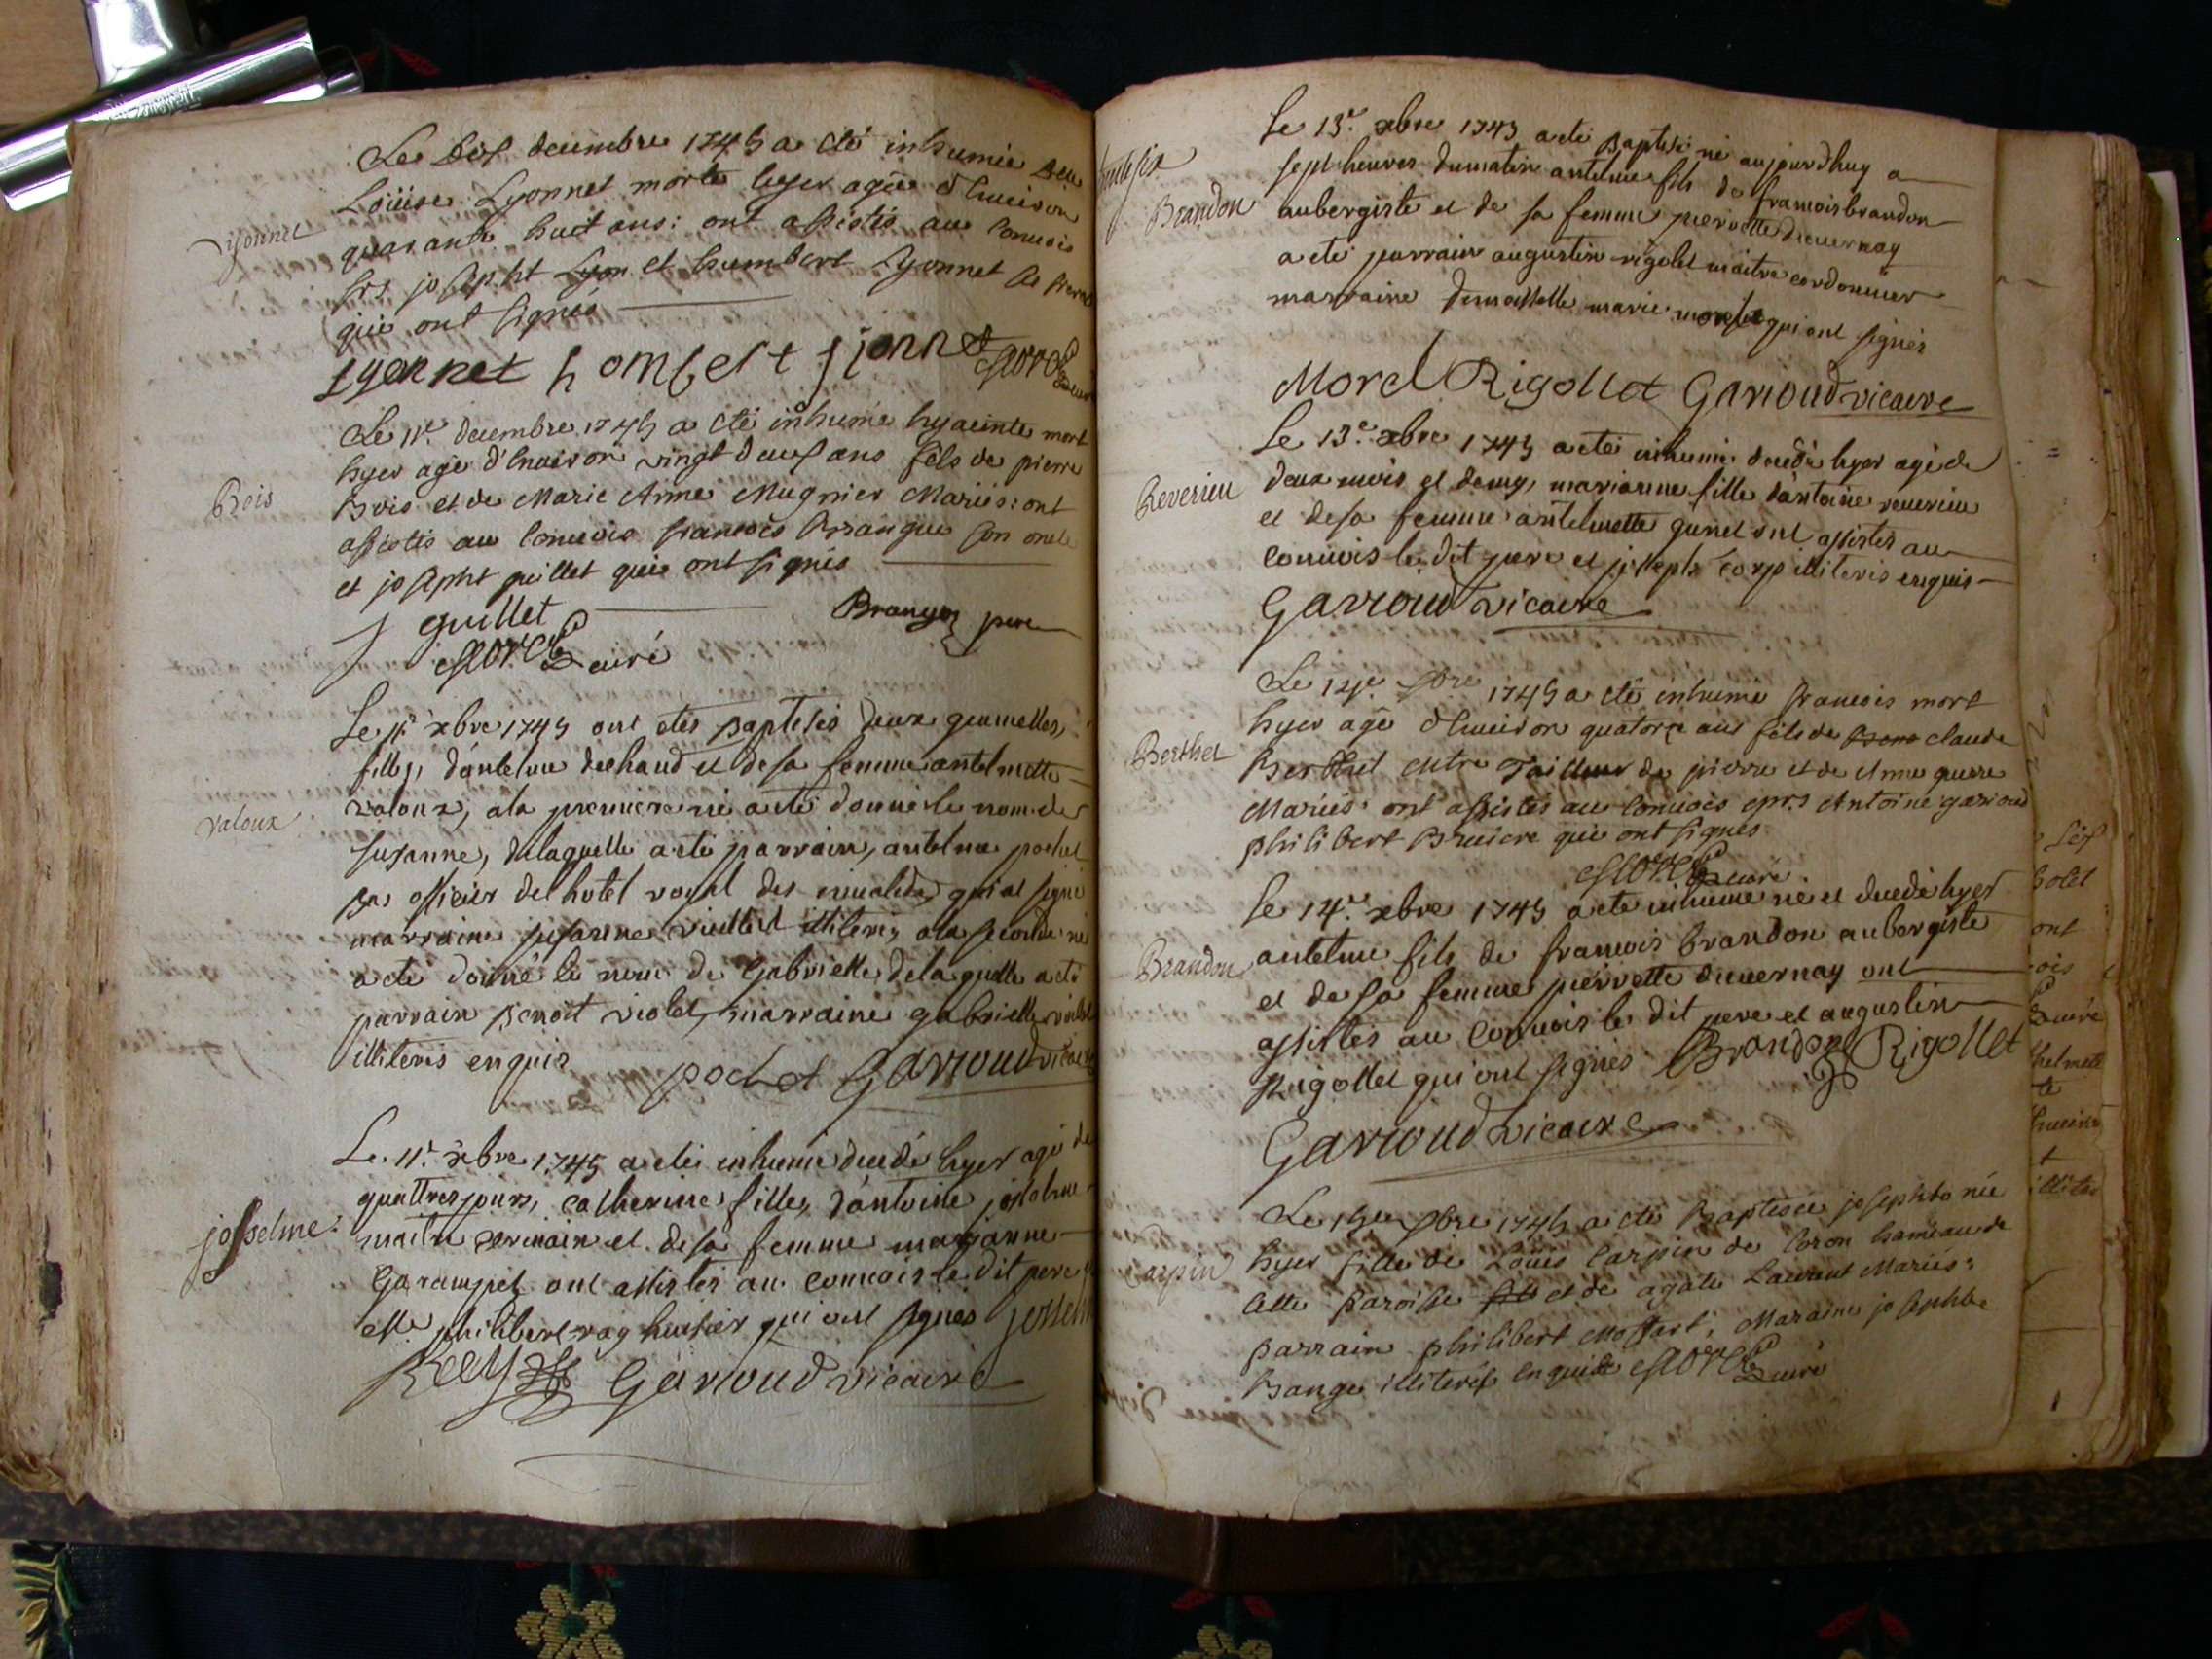 Le dix decembre 1745 a eté inhumée Delle
Loüise Lyonnet morte hyer agée d'henviron
Lyonnet
quarante huit ans: ont assistés au convois
Srs josepht Lyon et humbert Lyonnet
qui ont signés
Lyonnet hombert Lionnet Morel curé
Le 11e decembre 1745 a eté inhumé hyacinte mort
hyer agé d'henviron vingt deux ans fils de pierre
Bois
Bois et de Marie Anne Mugnier Mariés: ont
assistés au convois francois Brangue son oncle
et josepht guillet qui ont signés
J guillet Brangey pere
Morel curé
Le 11e xbre 1745 ont étés Baptisés deux gemelles,
filles, d'antelme dechaud et de sa femme antelmette
valoux
valoux, a la premiere né a eté donné le nom de
susanne, de laquelle a eté parrain, antelme pochet
bas officier de l'hotel royal des invalides qui at signé
marraine susanne violet illiteris, a la seconde né
a eté donné le nom de Gabrielle de laquelle a eté
parrain Benoit violet, marraine gabrielle violet
illiteris enquis pochet Garioud vicaire
Le 11e xbre 1745 a eté inhumé decedé hyer agé de
quattres jours, catherine fille, d'antoine josselme
josselme
maitre et de sa femme marianne
Garampet ont assistés au convois le dit pere
et Me philibert ray huissier qui ont signés josselme
Rey Garioud vicaire
Le 13e xbre 1745 a eté Baptisé né aujourdhuy a
sept heures du matin antelme fils de francois brandon
Brandon
aubergiste et de sa femme pierrette ducernay
a eté parrain augustin rigolet maitre cordonnier
marraine demoiselle marie morel qui ont signés
Morel Rigollet Garioud vicaire
Le 13e xbre 1745 a eté inhumé decedé hyer agé de
Reverieu
deux mois et demy, marianne fille d'antoine reverieu
et de sa femme antelmette gunet ont assistés au
convois le dit pere et joseph corp illiteris enquis
Garioud vicaire
Le 14e xbre 1745 a eté inhumé francois mort
hyer agé d'henviron quatorze ans fils de claude
Berthet
Berthet Mtre Tailleur de pierre et de Anne guerre
Mariés: ont assistés au convois Mrs Antoine garioud
philibert Bruiere qui ont signés
Morel curé
Le 14e xbre 1745 a eté inhumé né et decedé hyer
Brandon
antelme fils de francois brandon aubergiste
et de sa femme pierrette ducernay ont
assistés au convois le dit pere et augustin
Rigollet qui ont signés Brandon Rigollet
Garioud vicaire
Le 15e xbre 1745 a eté Baptisée josephte née
Carpin
hyer fille de Loüis Carpin de Coron hameau de
cette paroisse et de agate Laurent Mariés:
parrain philibert Mossart, Maraine josephte
Bange illiterés enquis Morel curé